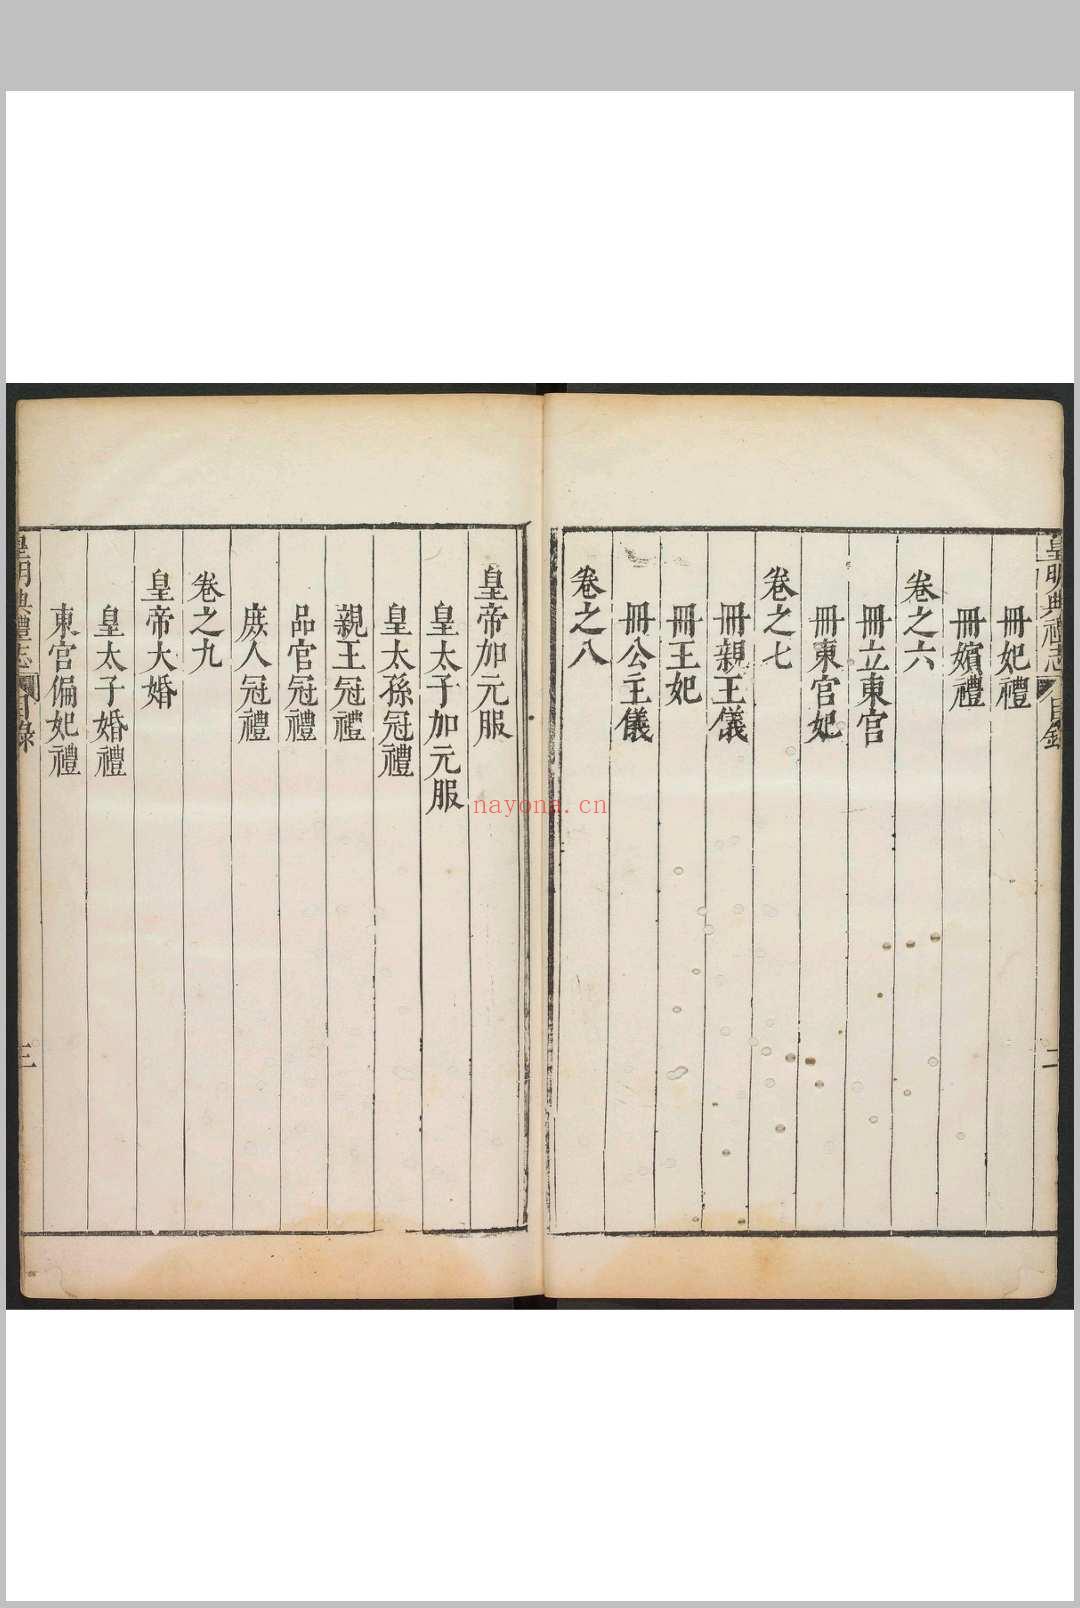 皇明典禮志 目錄 二
冊妃禮
冊嬪禮
卷之六
冊立東宮
冊東宮妃
卷之七
冊親王儀
冊王妃
冊公主儀
卷之八
皇帝加元服
皇太子加元服
皇太孫冠禮
親王冠禮
品官冠禮
庶人冠禮
卷之九
皇帝大婚
皇太子婚禮
東宮偏妃禮
皇明典禮志 目錄 三
nayona.cn